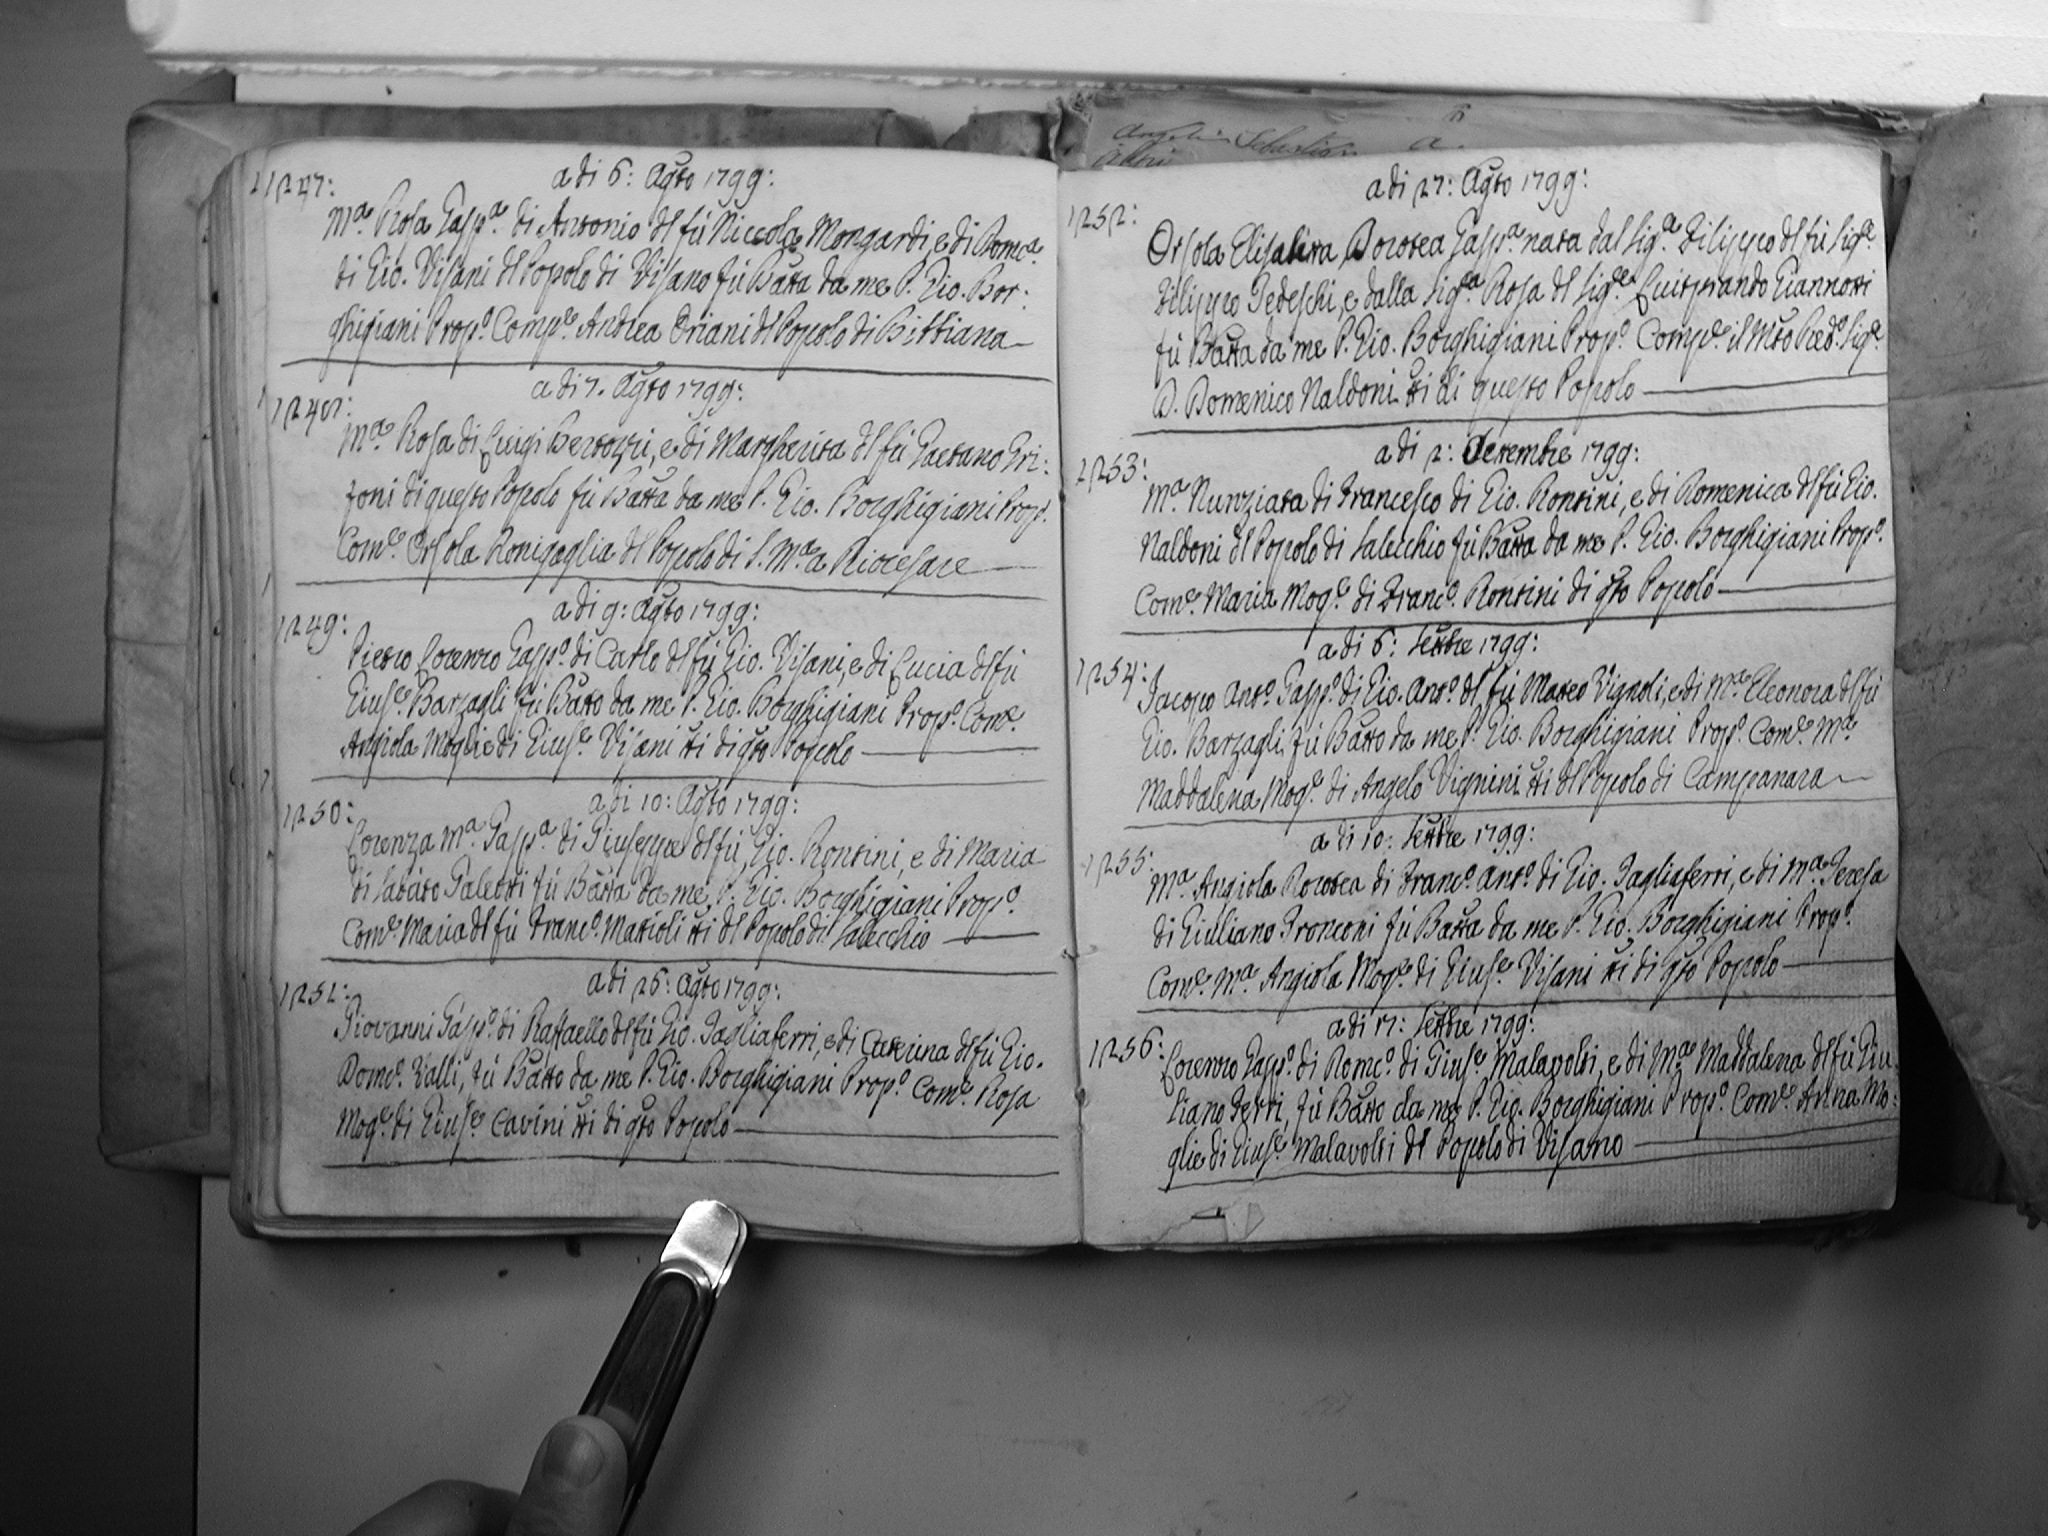 1247:
a di 6: Agto 1799:
Ma Rosa Gaspa di Antonio dl fù Niccola Mongardi, e di Domca
di Gio. Visani dl Popolo di Visano fù Batta da me P. Gio. Bor:
ghigiani Propo Compe Andrea Oriani dl Popolo di Bibbiana
a di 7. Agto 1799:
1248:
Ma Rosa di Luigi Bertozzi, e di Margherita dl fù Gaetano Gri:
zoni di questo Popolo fù Batta da me P. Gio. Borghigiani Propo.
Come Orsola Ronigaglia dl Popolo di S. Ma a Riocesare
a di 9: Agto 1799:
1249:
Pietro Lorenzo Gaspo di Carlo dl fù Gio. Visani, e di Lucia dl fù
Giuse Barzagli fù Batto da me P. Gio. Borghigiani Propo Come
Angiola Moglie di Giuse Visani tti di qto Popolo
a di 10: Agto 1799:
1250:
Lorenza Ma Gaspa di Giuseppe dl fù Gio. Rontini, e di Maria
di Sabato Galeotti fù Batta da me P. Gio. Borghigiani Propo
Come Maria dl fù Franco Matioli tti dl Popolo di Salecchio
a di 26: Agto 1799:
1251:
Giovanni Gaspo di Raffaello dl fù Gio. Tagliaferri, e di Caterina dl fù Gio.
Domco Valli, fù Batto da me P. Gio. Borghigiani Propo Come Rosa
Moge di Giuse Cavini tti di qto Popolo
a di 27: Agto 1799:
1252:
Orsola Elisabetta Dorotea Gaspa nata dal Sige Filippo dl fù Sige
Filippo Tedeschi, e dalla Siga Rosa dl Sige Luitprando Giannotti
fù Batta da me P. Gio. Borghigiani Propo Compe il Mto Redo Sige
D. Domenico Naldoni tti di questo Popolo
a di 2: Settembre 1799:
1253:
Ma Nunziata di Francesco di Gio. Rontini, e di Domenica dl fù Gio.
Naldoni dl Popolo di Salecchio fù Batta da me P. Gio. Borghigiani Propo
Come Maria Moge di Franco Rontini di qto Popolo
a di 6: Settbre 1799:
1254:
Jacopo Anto Gaspo di Gio. Anto dl fù Matteo Vignoli, e di Ma Eleonora dl fù
Gio. Barzagli fù Batto da me P. Gio. Borghigiani Propo Come Ma
Maddalena Moge di Angelo Vignini tti dl Popolo di Campanara
a di 10: Settbre 1799:
1255:
Ma Angiola Dorotea di Franco Anto di Gio. Tagliaferri, e di Ma Teresa
di Giulliano Fronconi fù Batta da me P. Gio. Borghigiani Propo
Come Ma Angiola Moge di Giuse Visani tti di qto Popolo
a di 17: Settbre 1799:
1256:
Lorenzo Gaspo di Domco di Giuse Malavolti, e di Ma Maddalena dl fù Giu
liano Ferri, fù Batto da me P. Gio. Borghigiani Propo Come Anna Mo:
glie di Giuse Malavolti dl Popolo di Visano